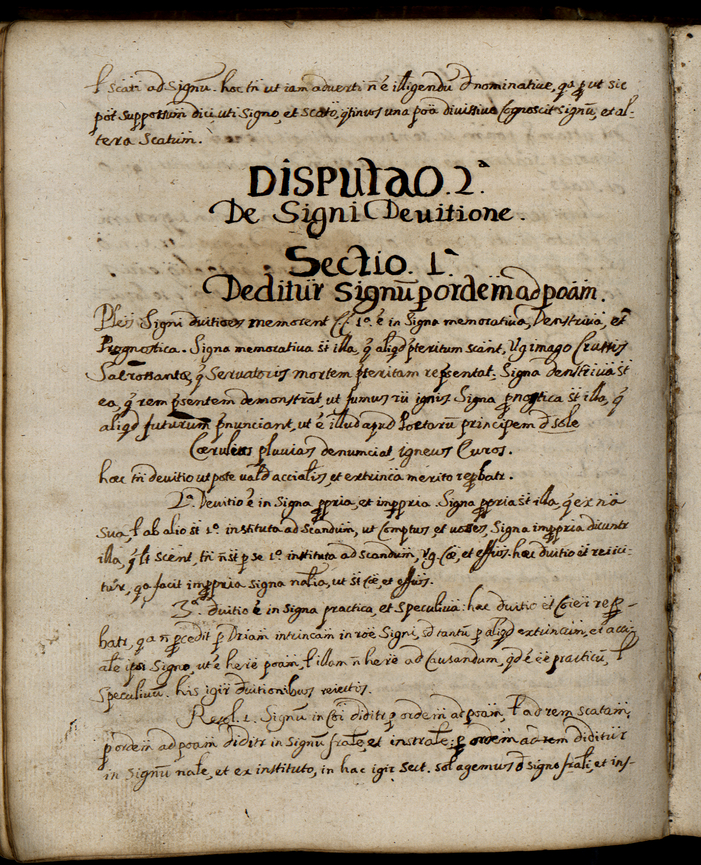 ł scati ad signū. hoc tn̄ ut iam adverti n̄ é illigendū dnominative, qa p ut sic
pót suppossum dici, uti signo, et scato, qtinus una poā divissive cognoscit signū, et al-
tera scatum.
DISPUTAO. 2ª
De Signi Devitione.
Sectio. 1ª
Deditur signū p ordem ad poām.
Ples Signi dvitioes memorent 1º. é in signa memorativa, Denstriva, et
Prognostica. Signa memorativa st illa, q aliqd pteritum scant, Vg imago Crussis
Sacrossantæ, q Servatoris mortem pteritam repsentat. Signa denstriva st
ea, q rem psentem demonstrat, ut fumus ignis Signa pnostica st illa, q
aliqd futurum pnunciant, ut é illud apud Poetarū principem d sole
Cæruleus pluvias denunciat, igneus Euros.
hæc tn̄ devitio utpote vald accialis, et extrinca merito reprobatr.
2ª. Devitio é in signa ppria, et impropria. Signa ppria st illa, q ex nā
sua, ł ab alio st 1º. instituta ad scandum, ut Comptus et voces, Signa impria dicuntr
illa, q lt scent, tn̄ n̄ st p se 1º. instituta ad scandum, Vg. Cæ, et effus. hæc dvitio et reiici-
tur, qa facit impropria signa nalia, ut st cæ, et effus.
3ª. dvitio é in signa practica, et speculiva: hæc dvitio et repro-
batr, qa n̄ pcedit p Driam intrincam in roē Signi, sd tantū p aliqd extrincum, et acci-
ale ipsi signo, ut é here poām, ł illam n̄ here ad causandum, qd é eē practicū, ł
speculivū. his igir dvitionibus reiectis.
Resol. 1. Signū in coi diditr p ordem ad poām, ł ad rem scatam.
p ordem ad poam diditr in signū frāle, et instrāle: p ordem ad rem diditur
in signū nale, et ex instituto, in hac igir sect. sol agemus d signo frāli, et ins-